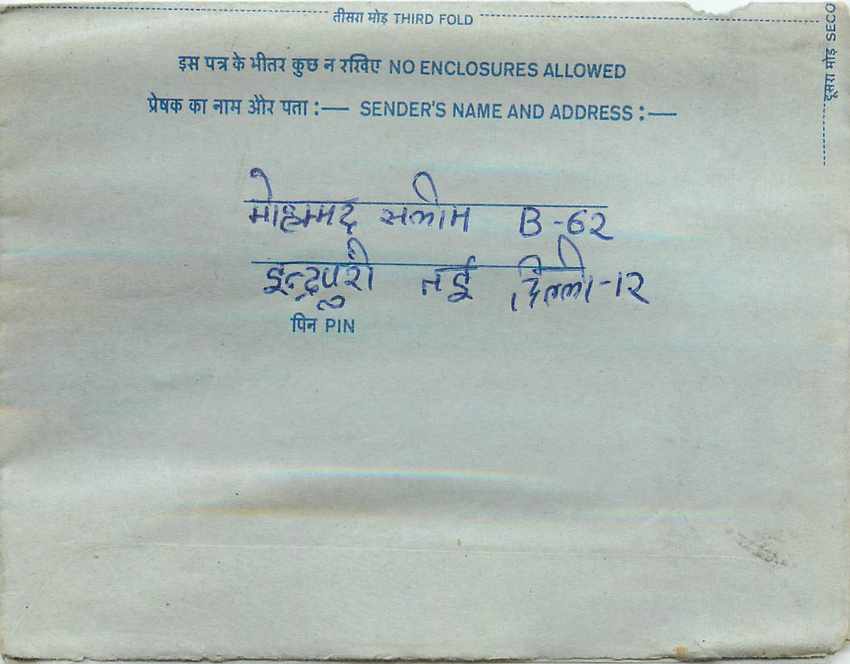 तीसरा मोड़ THIRD FOLD
दूसरा मोड़ SECO
इस पत्र के भीतर कुछ न रखिए NO ENCLOSURES ALLOWED
प्रेषक का नाम और पता :— SENDER'S NAME AND ADDRESS :—
मोहम्मद सलीम B-62
इन्द्रपुरी नई दिल्ली-12
पिन PIN